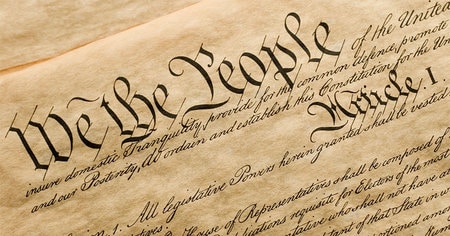 We the People of the United
insure domestic Tranquility, provide for the common defence, promote
and our Posterity, do ordain and establish this Constitution for the Un
Article. I.
1. All legislative Powers herein granted shall be vested
House of Representatives shall be composed of
requisite for Electors of the most
who shall not have at
of that State in w